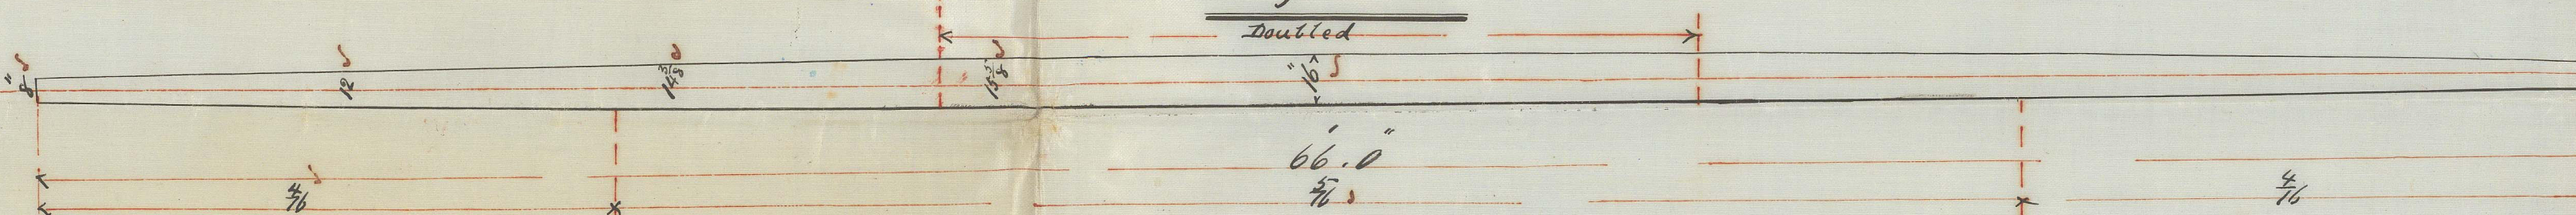 Doubled
8" 12 14 3/8 15 5/8 16"
66'.0"
4/16 5/16 4/16